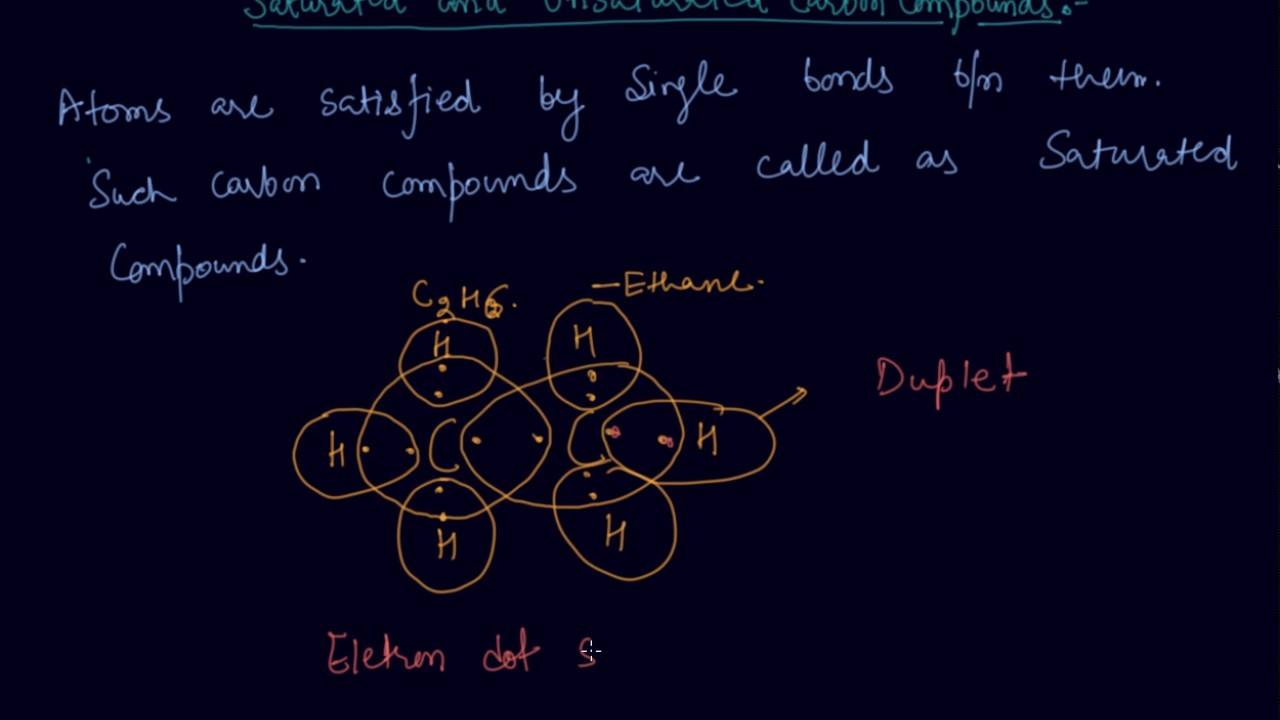 Saturated and Unsaturated Carbon Compounds:-
Atoms are satisfied by Single bonds b/n them.
Such carbon compounds are called as Saturated
Compounds.
C2H6. — Ethane.
H H
H C C H
H H
Duplet
Eletron dot S